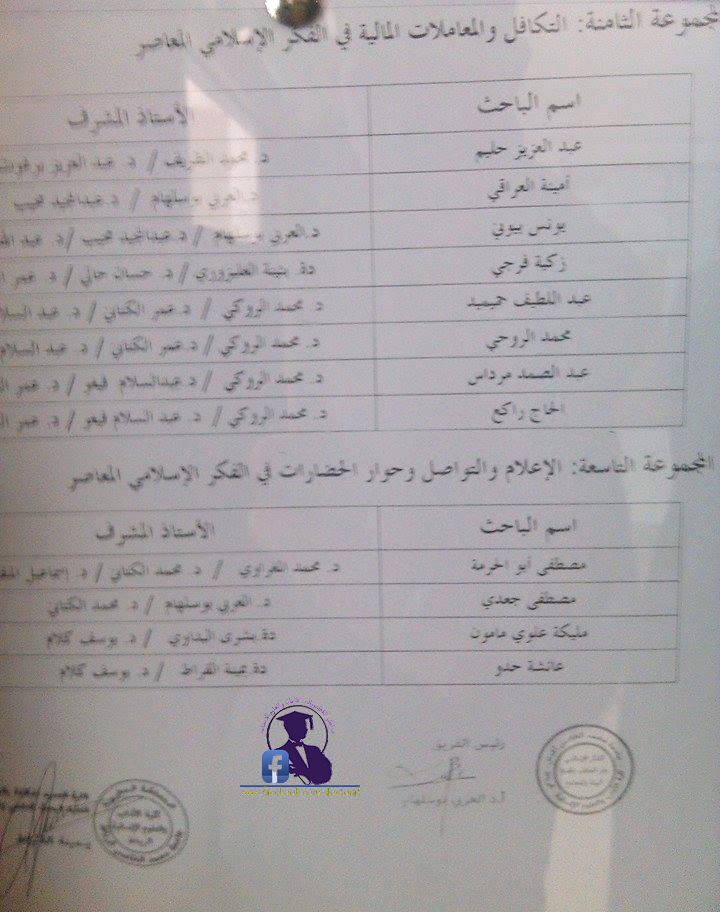 المجموعة الثامنة: التكافل والمعاملات المالية في الفكر الإسلامي المعاصر
اسم الباحث الأستاذ المشرف
عبد العزيز حليم د. محمد الظريف / د. عبد العزيز
أمينة العراقي د.العربي بوسلهام / د.عبدالمجيد محيب
يونس بيوني د.العربي بوسلهام / د.عبدالمجيد محيب / د. عبد
زكية فرجي دة. بثينة الغلبزوري / د. حسان حالي / د. عمر
عبد اللطيف حميميد د. محمد الروكي / د.عمر الكتاني / د. عبد
محمد الروحي د. محمد الروكي / د.عمر الكتاني / د. عبد السلام
عبد الصمد مرداس د. محمد الروكي / د.عبدالسلام فيغو / د. عمر
الحاج راكع د. محمد الروكي / د. عبد السلام فيغو / د. عمر
المجموعة التاسعة: الإعلام والتواصل وحوار الحضارات في الفكر الإسلامي المعاصر
اسم الباحث الأستاذ المشرف
مصطفى أبو الحرمة د. محمد / د. محمد الكتاني / د. إسماعيل
مصطفى جعدي د. العربي بوسلهام / د. محمد الكتاني
مليكة علوي مامون دة.بشرى البداوي / د. يوسف كلام
عائشة حدو دة. القراط / د. يوسف كلام
رئيس الفريق
أ.د. العربي بوسلهام